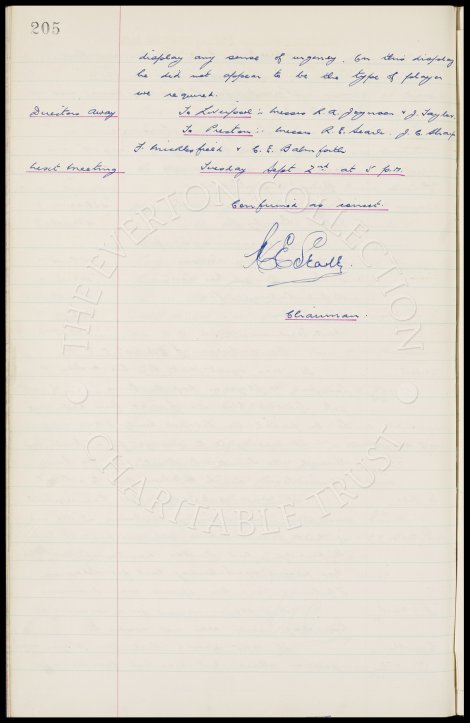 205
display any sense of urgency. On this display
he did not appear to be the type of player
we required.
Directors Away To Liverpool :- Messrs R.A. Joynson & J. Taylor.
To Preston :- Messrs R.E. Searle. J.C. Sharp
F. Micklesfield & C.E. Balmforth
Next Meeting Tuesday Sept 2nd at 5 p.m.
Confirmed as correct.
R E Searle.
Chairman.
THE EVERTON COLLECTION
CHARITABLE TRUST